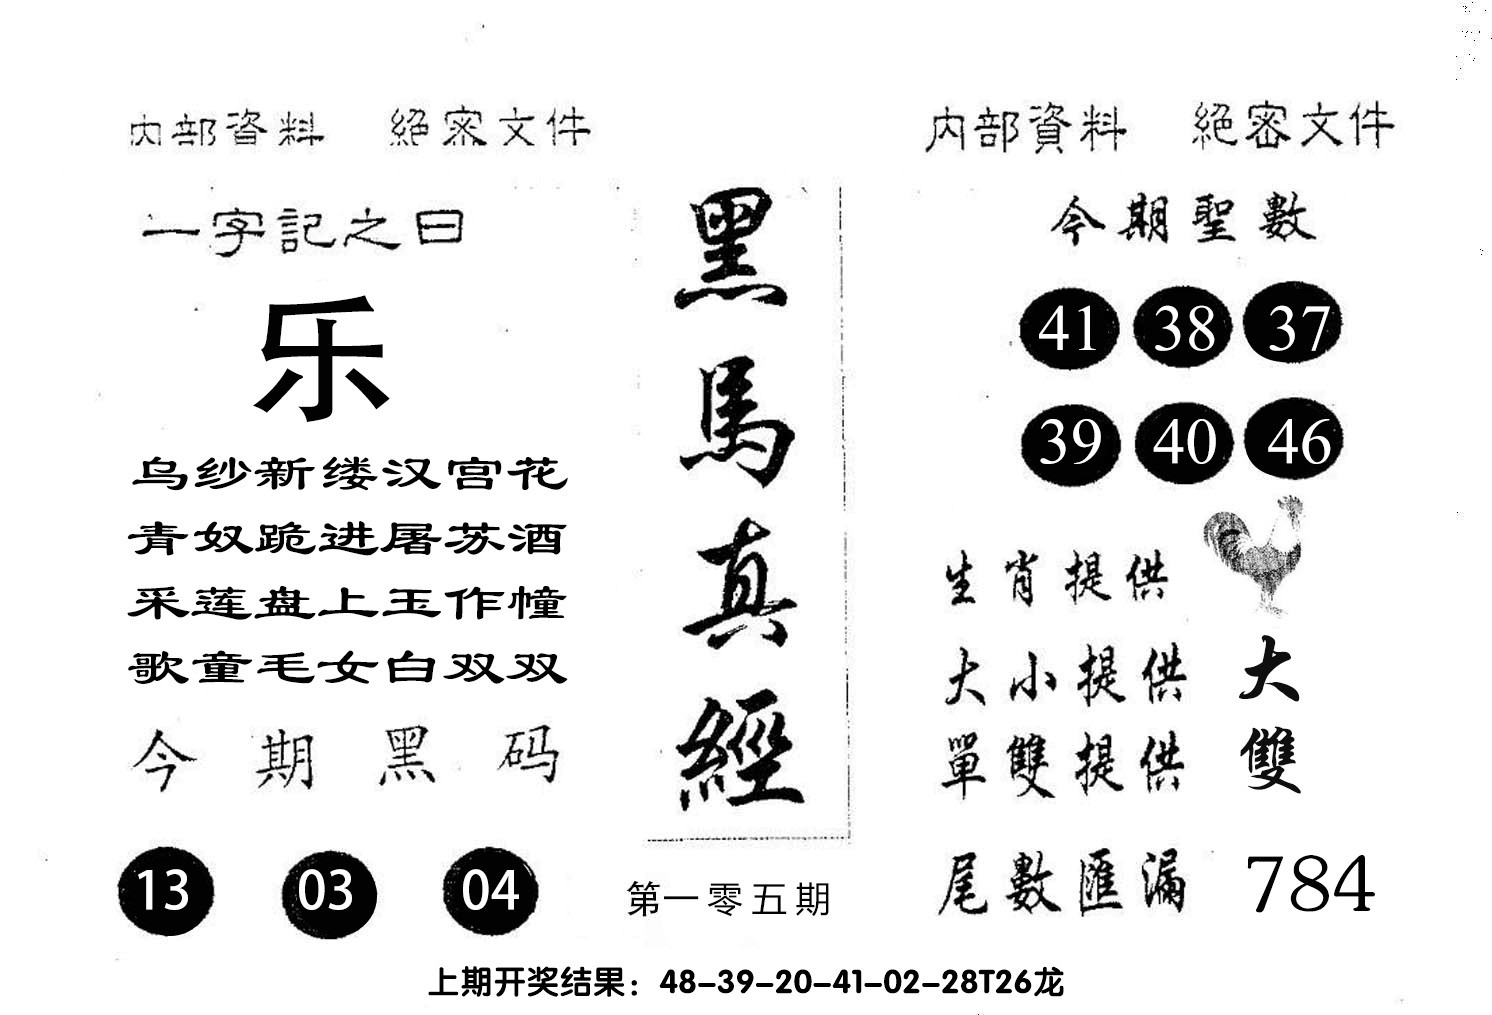 内部資料 絕密文件
一字記之曰
乐
乌纱新缕汉宫花
青奴跪进屠苏酒
采莲盘上玉作幢
歌童毛女白双双
今期黑码
13 03 04
黑馬真經
第一零五期
内部資料 絕密文件
今期聖數
41 38 37
39 40 46
生肖提供
大小提供 大
單雙提供 雙
尾數匯漏 784
上期开奖结果：48-39-20-41-02-28T26龙